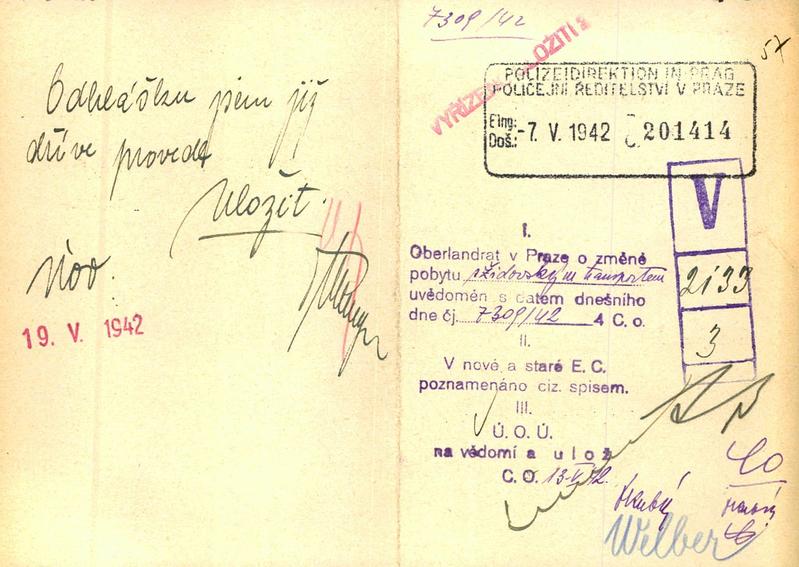 Odhlášku jsem již
dříve provedl
Uložit.
19. V. 1942
7309/42
57
VYŘÍZENO ULOŽITI
POLIZEIDIREKTION IN PRAG
POLICEJNÍ ŘEDITELSTVÍ V PRAZE
Eing:
Doš.: -7. V. 1942 201414
V
2133
3
I.
Oberlandrat v Praze o změně
pobytu židovským transportem
uvědoměn s datem dnešního
dne čj. 7309/42 4 C. o.
II.
V nové a staré E. C.
poznamenáno ciz. spisem.
III.
Ú. O. Ú.
na vědomí a ulož
C. O. 13.V.42.
Hrubý
Welber